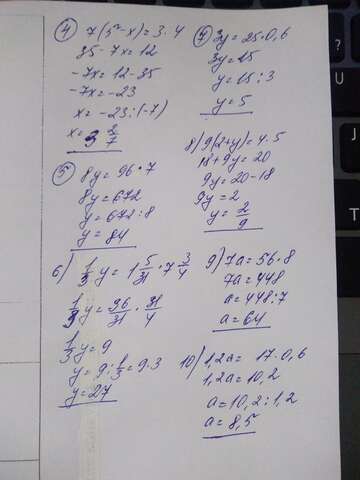 4) 7(5-x)=3·4
35-7x=12
-7x=12-35
-7x=-23
x=-23:(-7)
x=3 2/7
5) 8y=96·7
8y=672
y=672:8
y=84
6) 1/3 y = 1 5/31 · 7 3/4
1/3 y = 36/31 · 31/4
1/3 y = 9
y=9:1/3=9·3
y=27
7) 3y=25·0,6
3y=15
y=15:3
y=5
8) 9(2+y)=4·5
18+9y=20
9y=20-18
9y=2
y=2/9
9) 7a=56·8
7a=448
a=448:7
a=64
10) 1,2a=17·0,6
1,2a=10,2
a=10,2:1,2
a=8,5